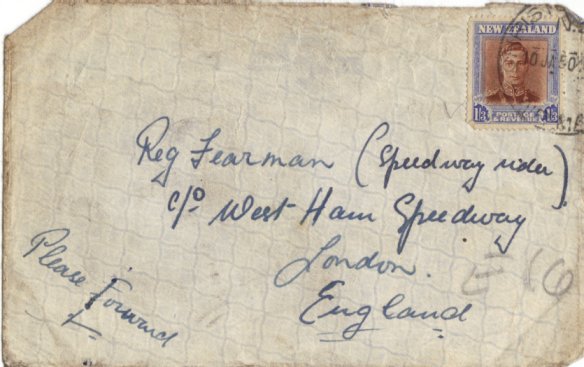 NEW ZEALAND
10 JA 50
1/3 POSTAGE & REVENUE 1/3
Reg Fearman (Speedway rider)
c/o West Ham Speedway
London.
England
Please Forward
E 16